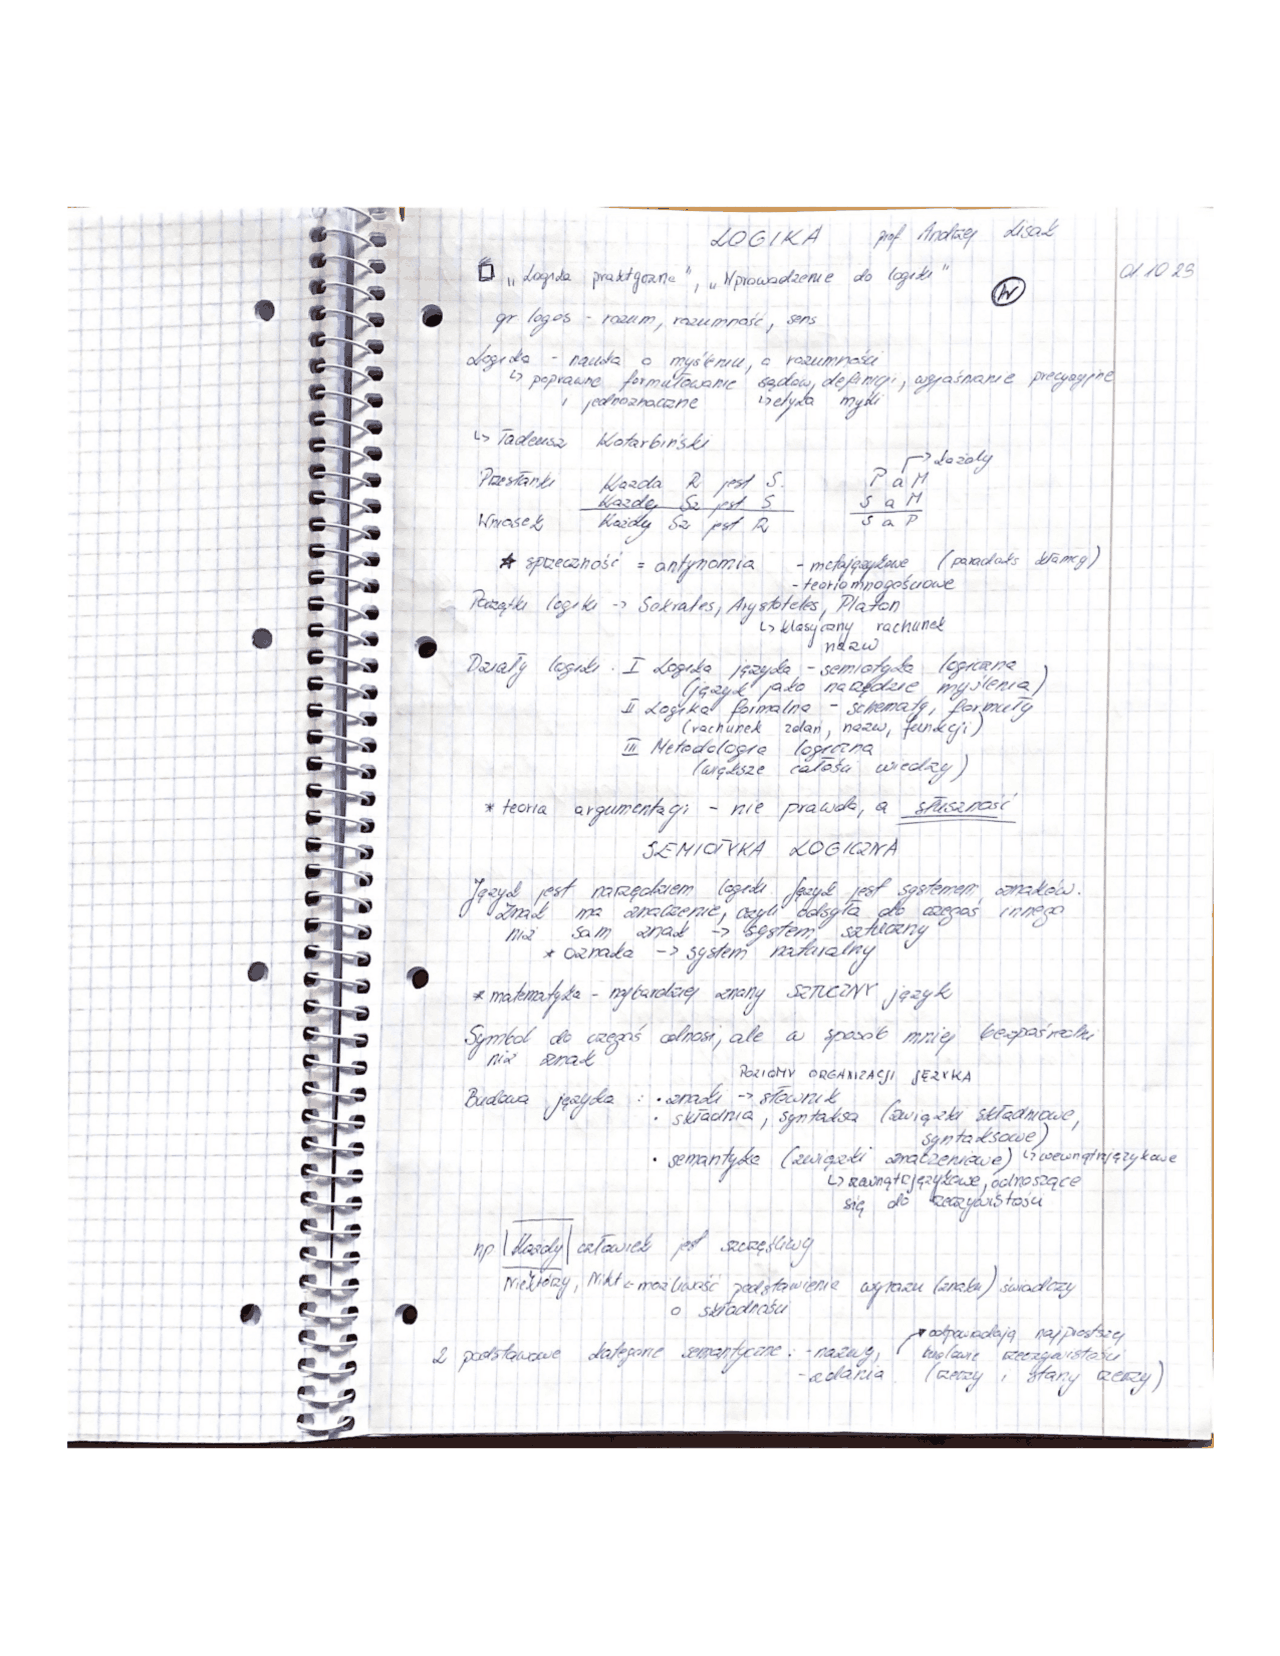 LOGIKA prof Andrzej Lisak
01.10.23
„Logika praktyczna", „Wprowadzenie do logiki"
W
gr. logos - rozum, rozumność, sens
Logika - nauka o myśleniu, o rozumności
↳ poprawne formułowanie sądów, definicji, wyjaśnianie precyzyjne
i jednoznaczne ↳ etyka myśli
↳ Tadeusz Kotarbiński
→ każdy
Przesłanki Każda R jest S. P a M
Każdy Sz jest S S a M
Wniosek Każdy Sz jest R S a P
* sprzeczność = antynomia - metajęzykowe (paradoks kłamcy)
- teoriomnogościowe
Początki logiki -> Sokrates, Arystoteles, Platon
↳ klasyczny rachunek
nazw
Działy logiki. I Logika języka - semiotyka logiczna
(język jako narzędzie myślenia)
II Logika formalna - schematy, formuły
(rachunek zdań, nazw, funkcji)
III Metodologia logiczna
(większe całości wiedzy)
* teoria argumentacji - nie prawda, a słuszność
SEMIOTYKA LOGICZNA
Język jest narzędziem logiki. Język jest systemem znaków.
Znak ma znaczenie, czyli odsyła do czegoś innego
niż sam znak -> system sztuczny
* oznaka -> system naturalny
* matematyka - najbardziej znany SZTUCZNY język
Symbol do czegoś odnosi, ale w sposób mniej bezpośredni
niż znak
POZIOMY ORGANIZACJI JĘZYKA
Budowa języka : • znaki -> słownik
• składnia, syntaksa (związki składniowe,
syntaksowe)
• semantyka (związki znaczeniowe) ↳ wewnątrzjęzykowe
↳ zewnątrzjęzykowe, odnoszące
się do rzeczywistości
np |Każdy| człowiek jest szczęśliwy
Niektórzy, Nikt <- możliwość podstawienia wyrazu (znaku) świadczy
o składności
odpowiadają najprostszej
2 podstawowe kategorie semantyczne : - nazwy, budowie rzeczywistości
- zdania (rzeczy i stany rzeczy)